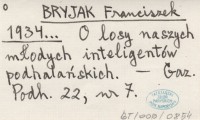 BRYJAK Franciszek
1934... O losy naszych
młodych inteligentów
podhalańskich. — Gaz.
Podh. 22, nr 7.